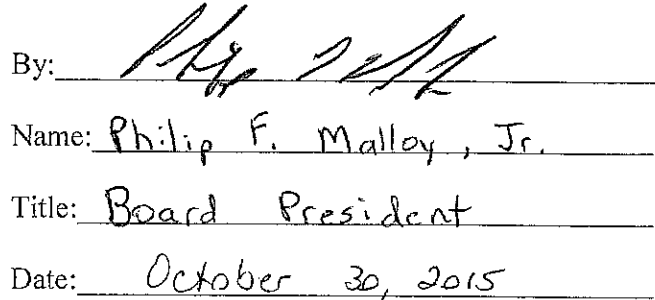 By:
Name: Philip F. Malloy, Jr.
Title: Board President
Date: October 30, 2015